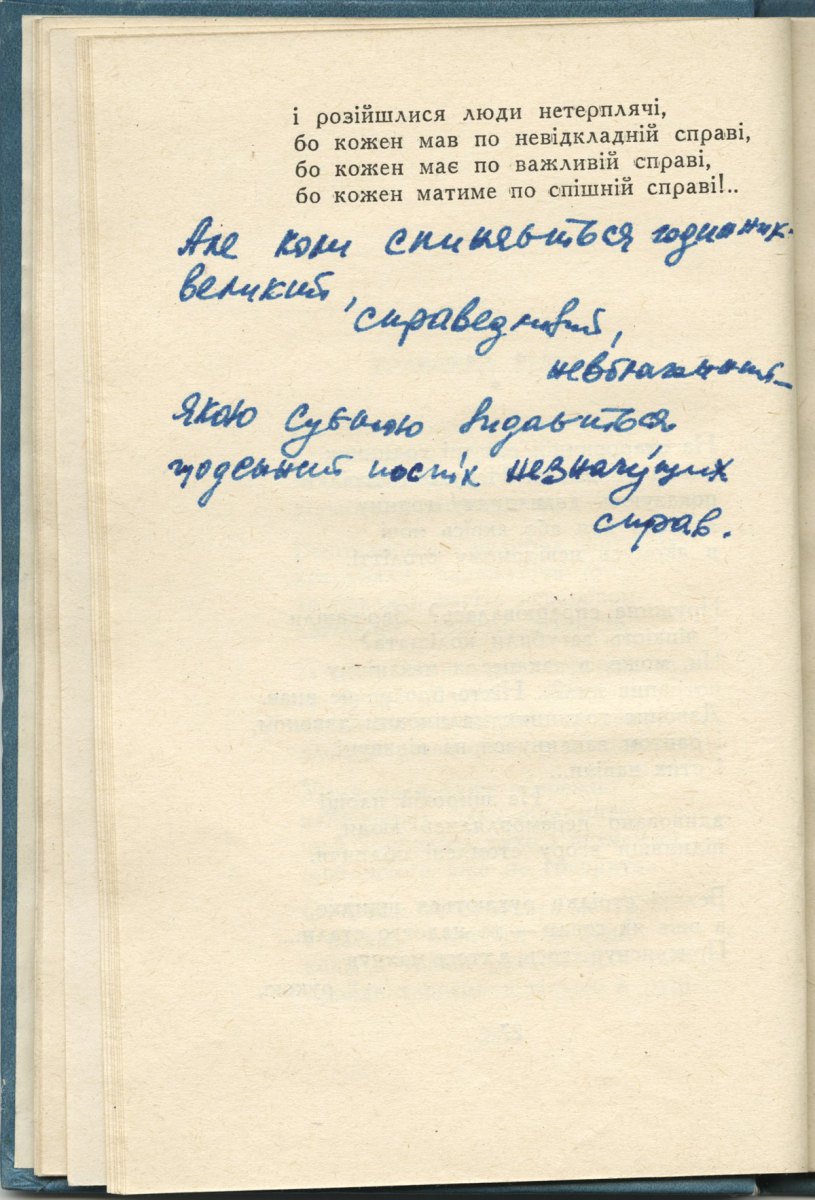 і розійшлися люди нетерплячі,
бо кожен мав по невідкладній справі,
бо кожен має по важливій справі,
бо кожен матиме по спішній справі!..
Але коли спиняється годинник
великий,
справедливий,
невблаганний –
якою суєтною видається
щоденний поспіх незначущих
справ.